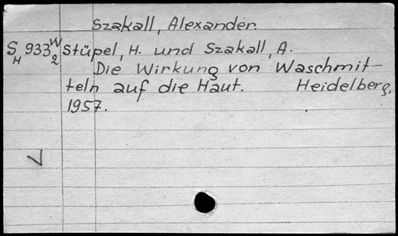 Szakall, Alexander.
S 933 W Stüpel, H. und Szakall, A.
H 2 Die Wirkung von Waschmit-
teln auf die Haut. Heidelberg,
1957.